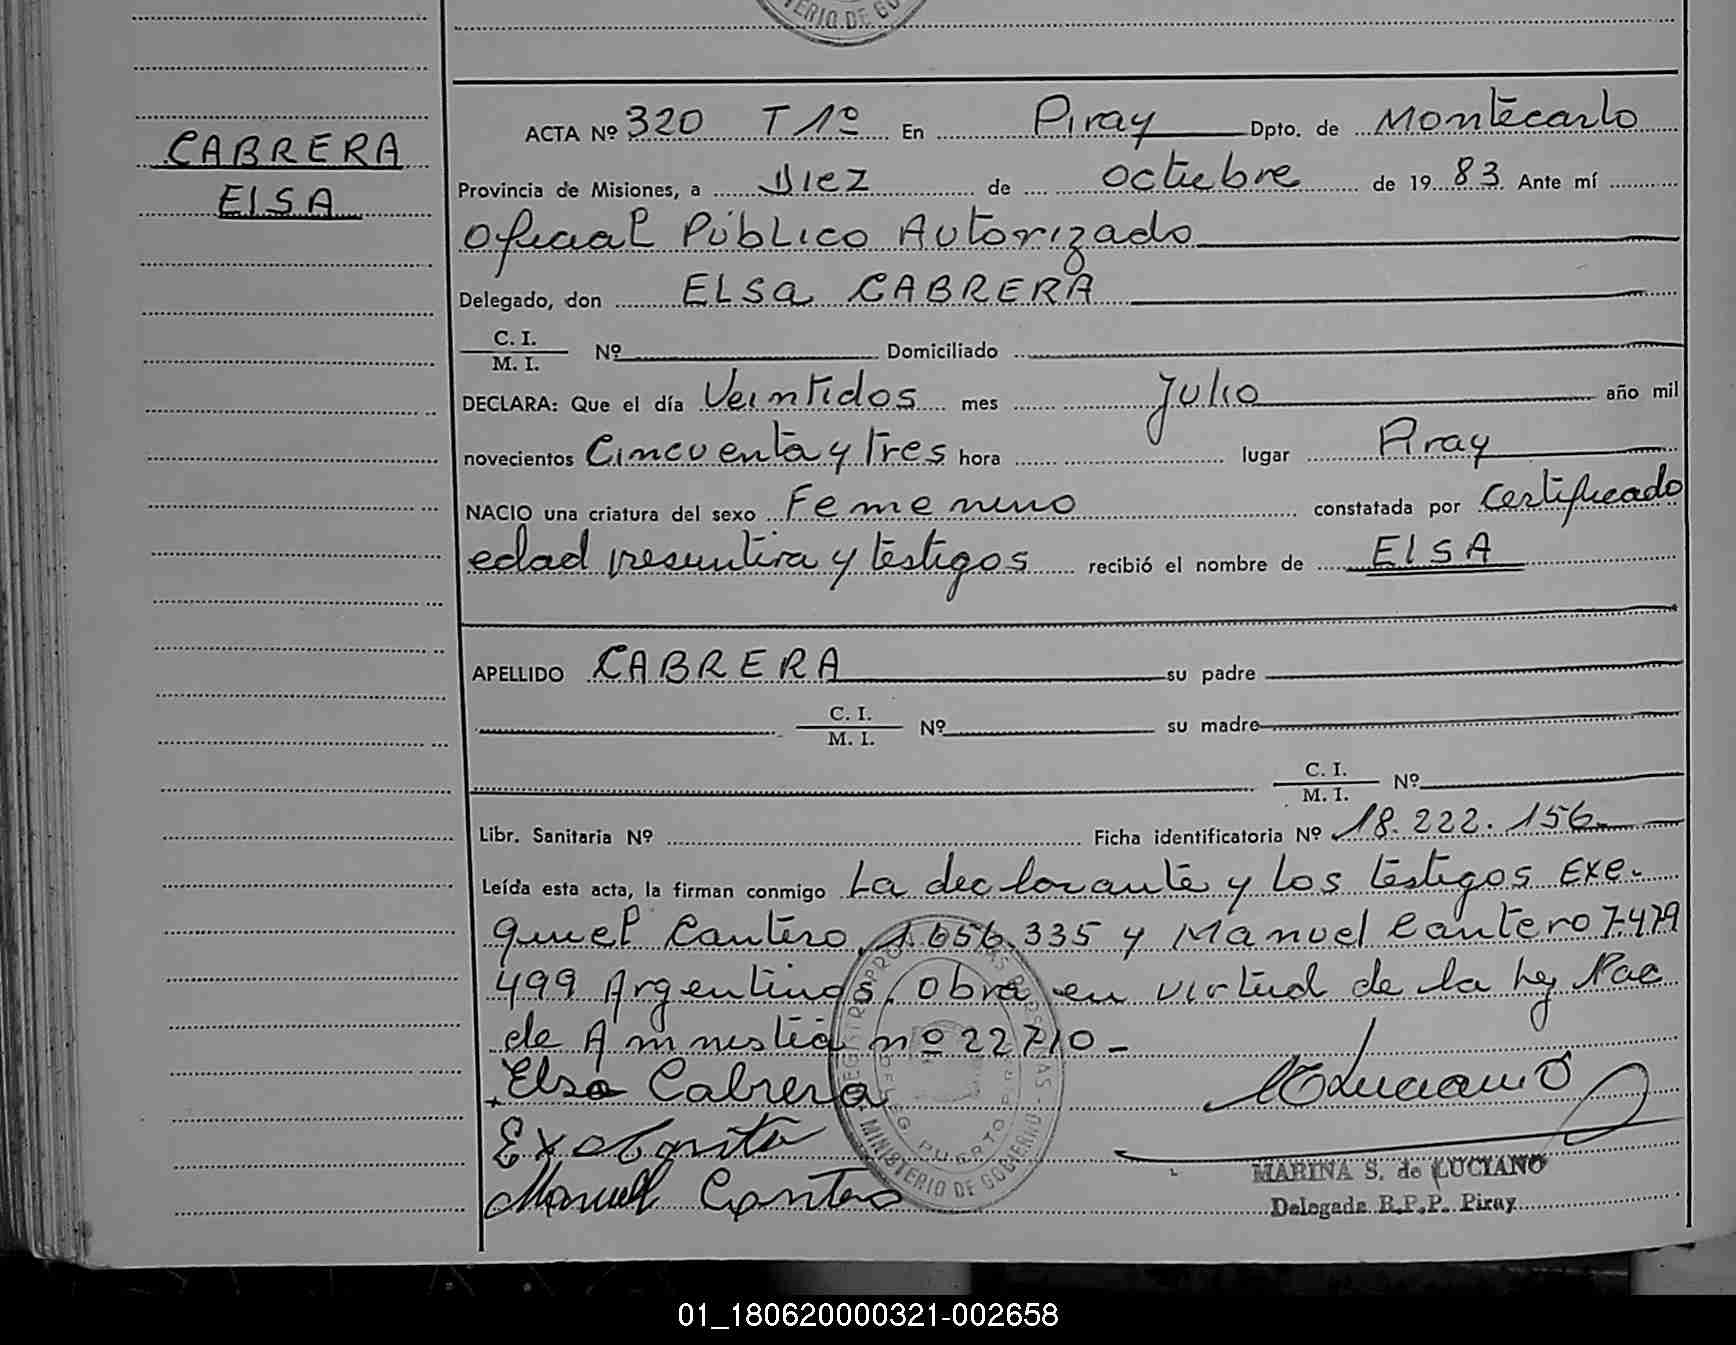 TERIO DE GO
CABRERA
ElSA
ACTA Nº 320 T 1º En Piray Dpto. de Montecarlo
Provincia de Misiones, a Diez de octubre de 1983. Ante mí
Oficial Público Autorizado
Delegado, don ELSA CABRERA
C. I.
M. I. Nº Domiciliado
DECLARA: Que el día Veintidos mes Julio año mil
novecientos Cincuenta y Tres hora lugar Piray
NACIO una criatura del sexo Femenino constatada por Certificado
edad presuntiva y testigos recibió el nombre de ElSA
APELLIDO CABRERA su padre
C. I.
M. I. Nº su madre
C. I.
M. I. Nº
Libr. Sanitaria Nº Ficha identificatoria Nº 18.222.156
Leída esta acta, la firman conmigo La declarante y los testigos Exe-
quiel Cantero, 1.656.335 y Manuel Cantero 7.479
499 Argentinos, obra en virtud de la ley Nac
de Amnistia nº 22710-
Elsa Cabrera
Manuel Cantero
MINISTERIO DE GOBIERNO
MARINA S. de LUCIANO
Delegada R.P.P. Piray
01_180620000321-002658